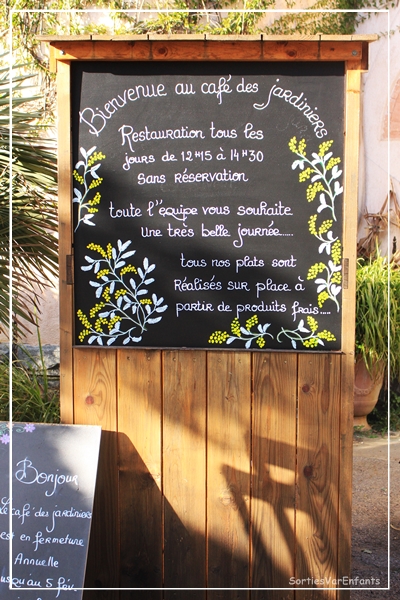 Bienvenue au café des jardiniers
Restauration tous les
jours de 12H15 à 14H30
sans réservation
toute l'équipe vous souhaite
une très belle journée.....
tous nos plats sont
Réalisés sur place à
partir de produits frais....
Bonjour
café des jardiniers
en fermeture
Annuelle
au 5 fév
SortiesVarEnfants